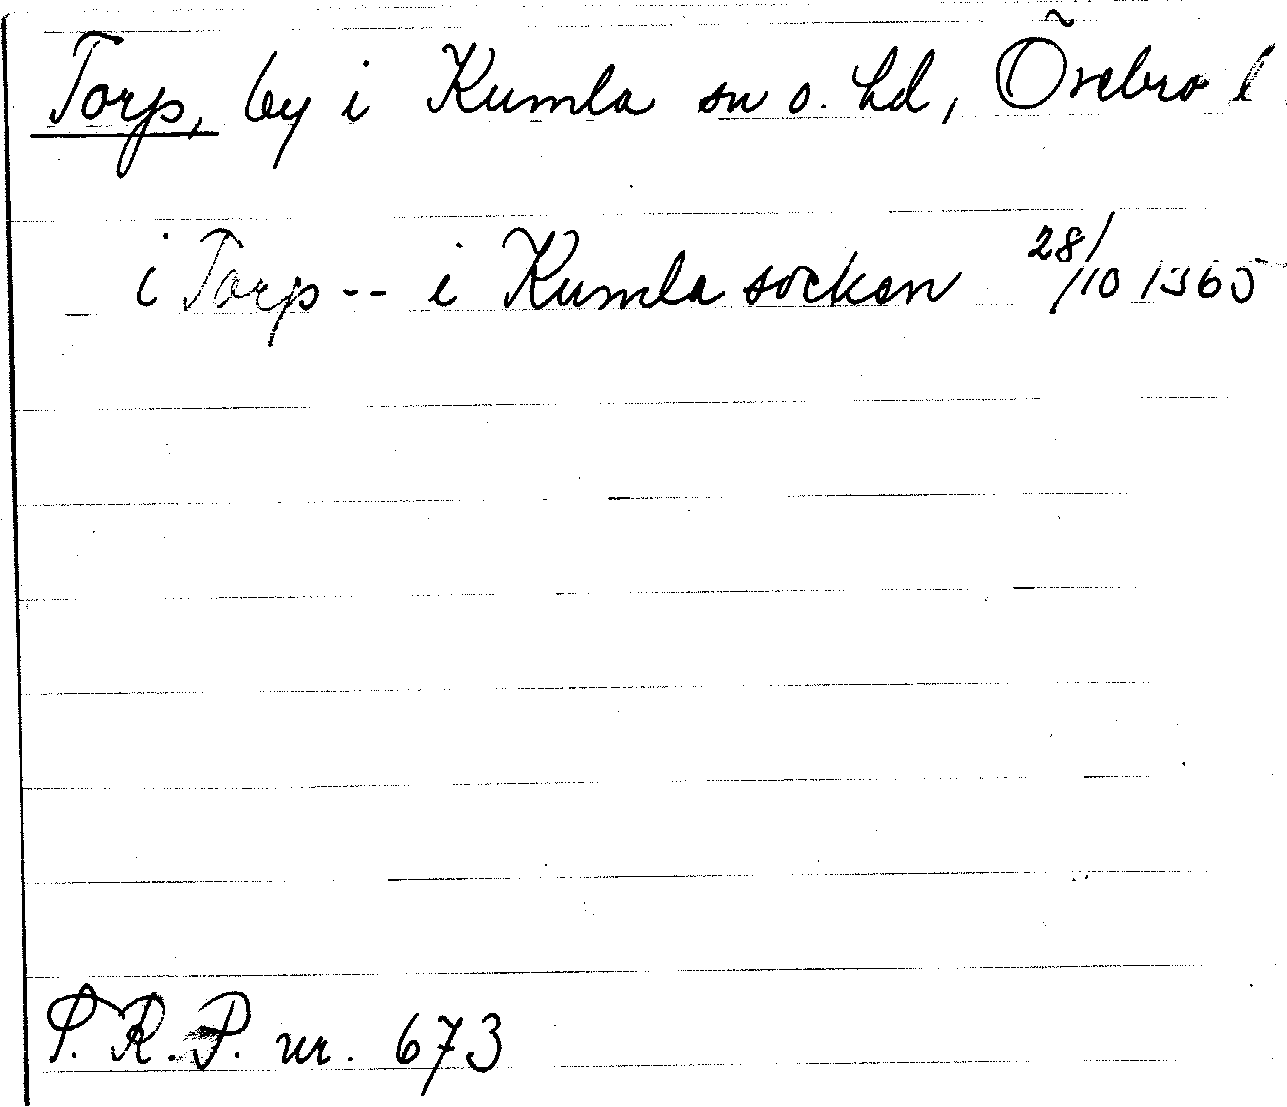 Torp, by i Kumla sn o. hd, Örebro l
i Torp -- i Kumla socken 28/10 1365
S.R.P. nr. 673